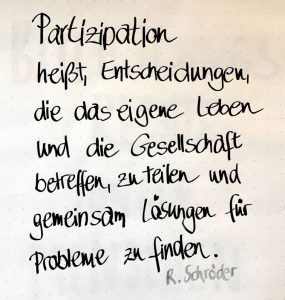 Partizipation
heißt, Entscheidungen,
die das eigene Leben
und die Gesellschaft
betreffen, zu teilen und
gemeinsam Lösungen für
Probleme zu finden.
R. Schröder